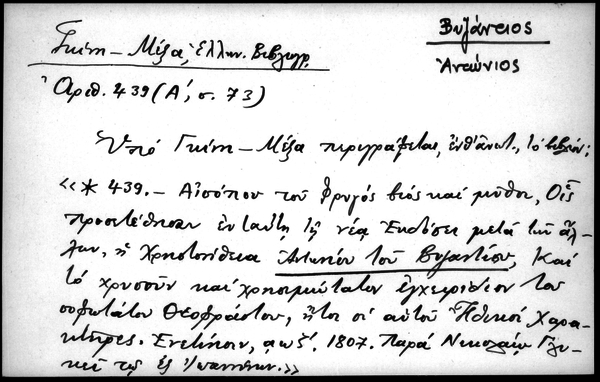 Βυζάντιος
Ἀντώνιος
Γκίνη – Μέξα, Ἑλλην. Βιβλιογρ.
Ἀριθ. 439 (Α΄, σ. 73)
Ὑπὸ Γκίνη – Μέξα περιγράφεται, ἐνθ' ἀνωτ., τὸ βιβλίον:
«* 439. – Αἰσώπου τοῦ Φρυγός βιός καὶ μῦθοι, Οἷς
προσετέθησαν ἐν ταύτῃ τῇ νέᾳ Ἐκδόσει μετὰ τῶν ἄλ-
λων, ἡ Χρηστοήθεια Ἀντωνίου τοῦ Βυζαντίου, Καὶ
τὸ χρυσοῦν καὶ χρησιμώτατον ἐγχειρίδιον τοῦ
σοφωτάτου Θεοφράστου, ἤτοι οἱ αὐτοῦ Ἠθικοί Χαρα-
κτῆρες. Ἐνετίησιν, αωζ΄. 1807. Παρὰ Νικολάῳ Γλυ-
κεῖ τῷ ἐξ Ἰωαννίνων.»